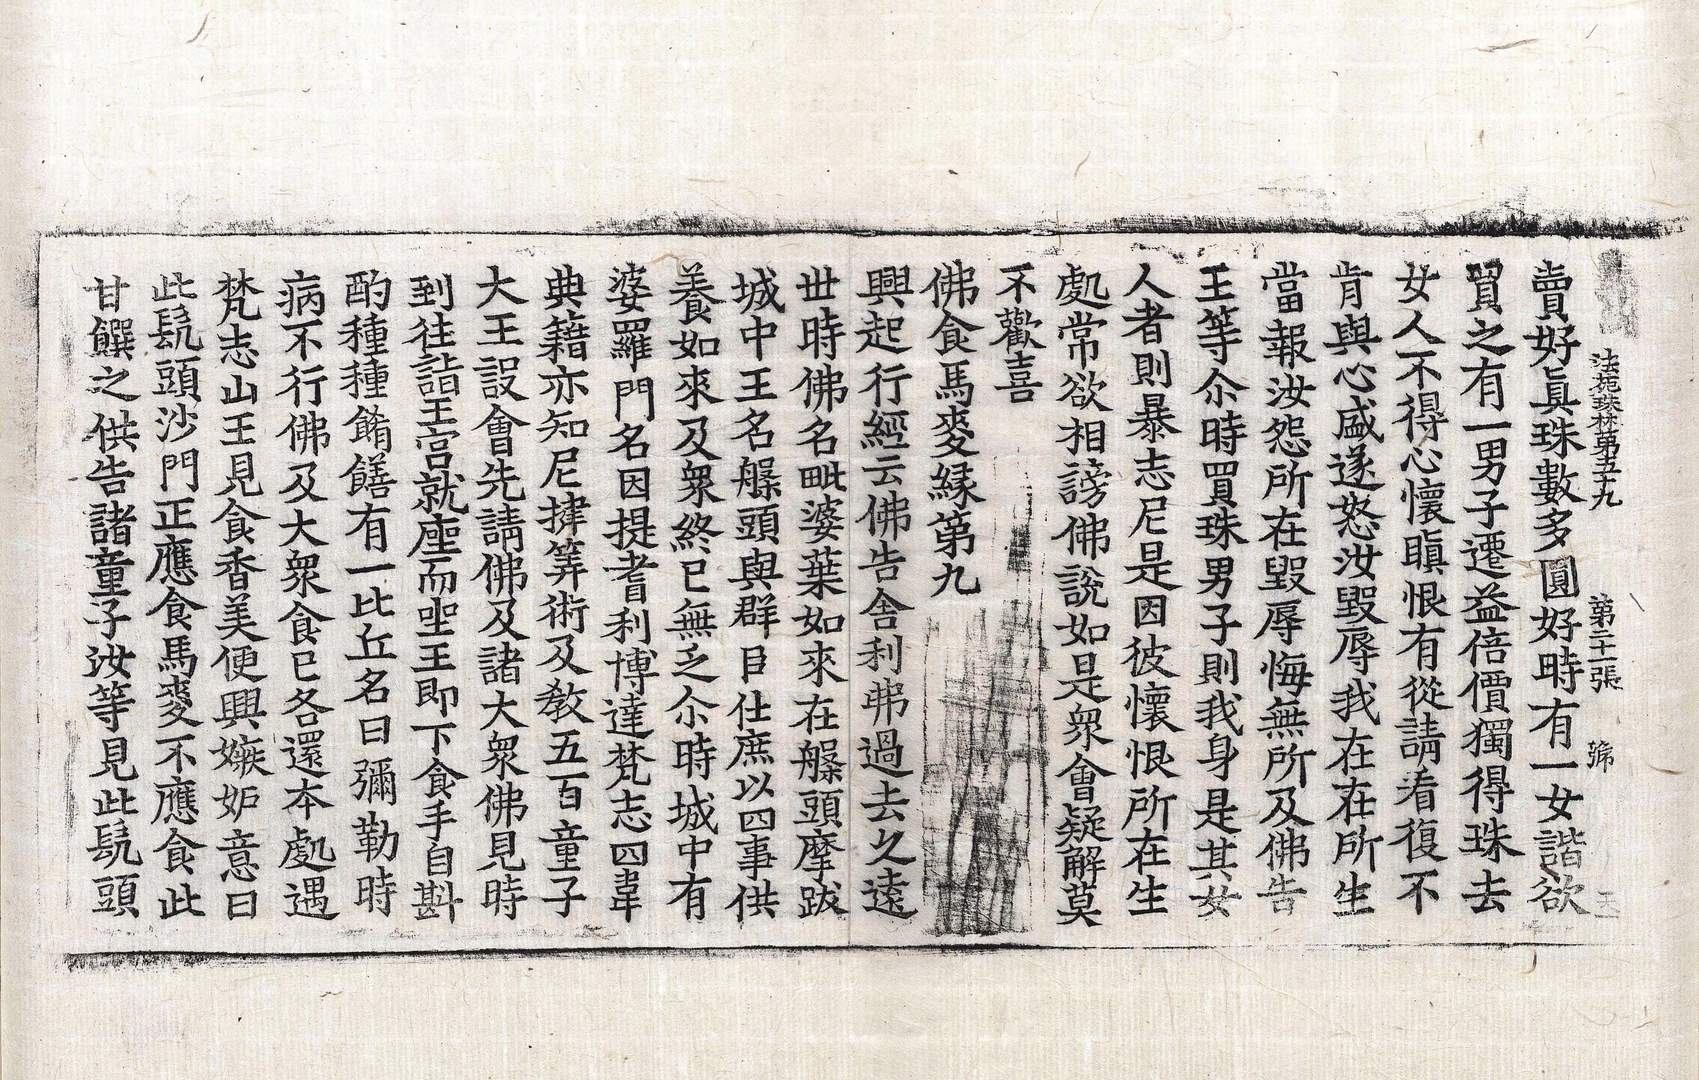 法苑珠林第五十九 第二十一張 㷌
賣好眞珠數多圓好時有一女諧欲
買之有一男子遷益倍價獨得珠去
女人不得心懷瞋恨有從請看復不
肯與心盛遂怒汝毀辱我在在所生
當報汝怨所在毀辱悔無所及佛告
王等尒時買珠男子則我身是其女
人者則暴志尼是因彼懷恨所在生
處常欲相謗佛說如是衆會疑解莫
不歡喜
佛食馬麥緣第九
興起行經云佛告舍利弗過去久遠
世時佛名毗婆葉如來在槃頭摩跋
城中王名槃頭與群臣仕庶以四事供
養如來及衆終已無乏尒時城中有
婆羅門名因提耆利博達梵志四韋
典籍亦知尼揵筭術及教五百童子
大王設會先請佛及諸大衆佛見時
到往詣王宮就座而坐王即下食手自斟
酌種種餚饍有一比丘名曰彌勒時
病不行佛及大衆食已各還本處遇
梵志山王見食香美便興嫉妒意曰
此髡頭沙門正應食馬麥不應食此
甘饌之供告諸童子汝等見此髡頭